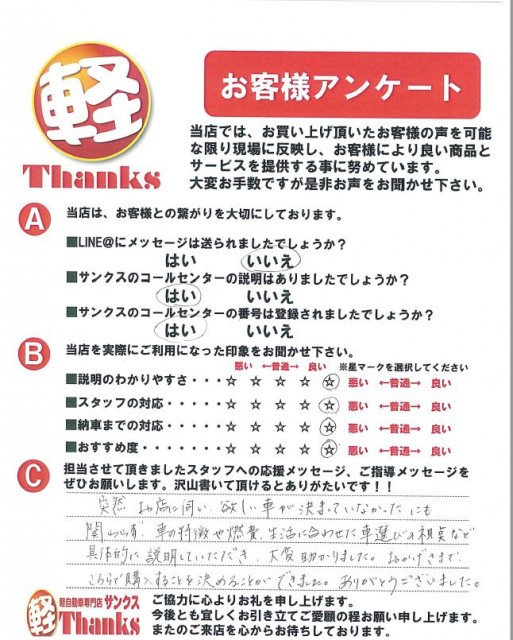 軽
Thanks
お客様アンケート
当店では、お買い上げ頂いたお客様の声を可能
な限り現場に反映し、お客様により良い商品と
サービスを提供する事に努めています。
大変お手数ですが是非お声をお聞かせ下さい。
A 当店は、お客様との繋がりを大切にしております。
■LINE@にメッセージは送られましたでしょうか？
はい いいえ
■サンクスのコールセンターの説明はありましたでしょうか？
はい いいえ
■サンクスのコールセンターの番号は登録されましたでしょうか？
はい いいえ
B 当店を実際にご利用になった印象をお聞かせ下さい。
悪い ←普通→ 良い ※星マークを選択してください
■説明のわかりやすさ・・・・☆ ☆ ☆ ☆ ☆ 悪い ←普通→ 良い
■スタッフの対応・・・・・☆ ☆ ☆ ☆ ☆ 悪い ←普通→ 良い
■納車までの対応・・・・・☆ ☆ ☆ ☆ ☆ 悪い ←普通→ 良い
■おすすめ度・・・・・・・☆ ☆ ☆ ☆ ☆ 悪い ←普通→ 良い
C 担当させて頂きましたスタッフへの応援メッセージ、ご指導メッセージを
ぜひお願いします。沢山書いて頂けるとありがたいです！！
突然お店に伺い、欲しい車が決まっていなかったにも
関わらず、車の特徴や燃費、生活に合わせた車選びの視点など
具体的に説明していただき、大変助かりました。おかげさまで、
こちらで購入することを決めることができました。ありがとうございました。
軽 軽自動車専門店 サンクス
Thanks
ご協力に心よりお礼を申し上げます。
今後とも宜しくお引き立てご愛顧の程お願い申し上げます。
またのご来店を心からお待ちしております。